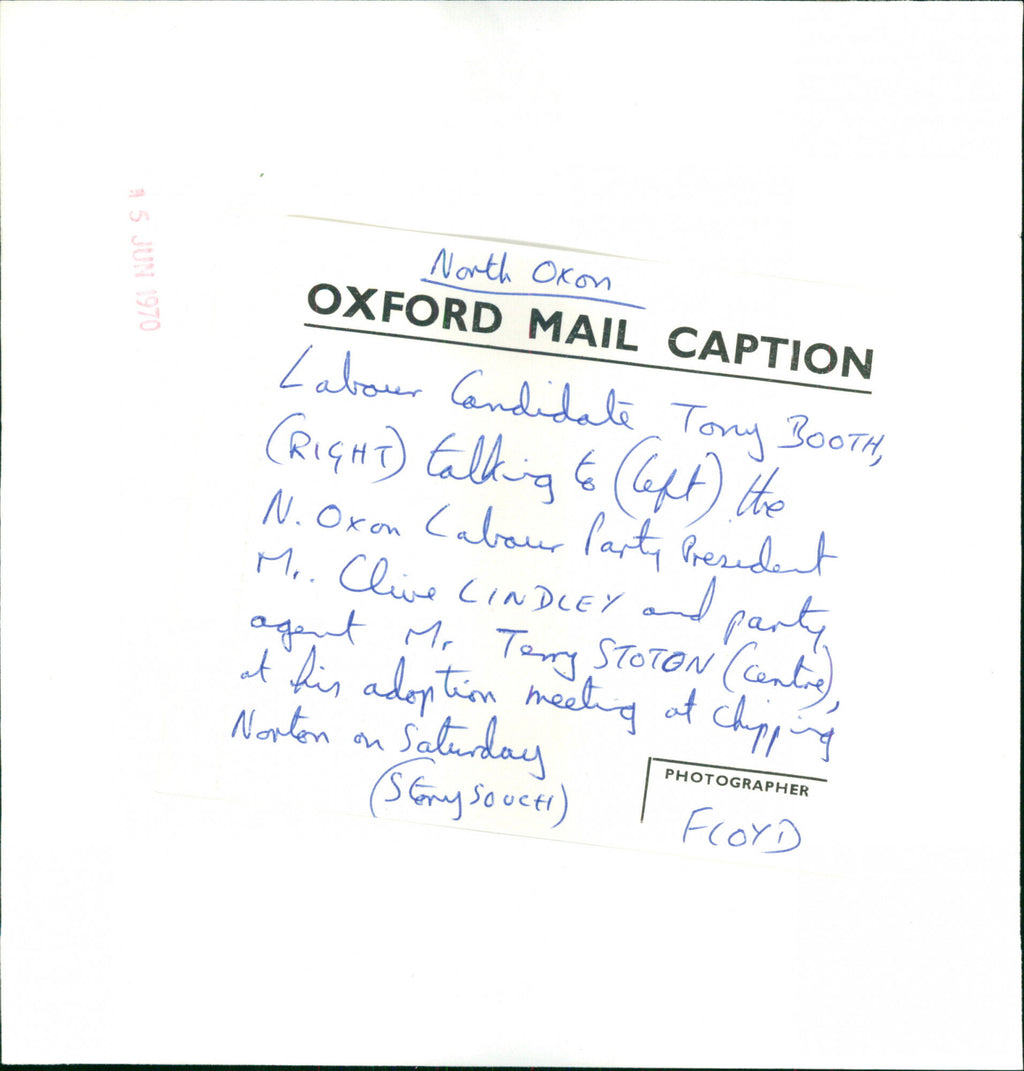 15 JUN 1970
North Oxon
OXFORD MAIL CAPTION
Labour Candidate Tony BOOTH,
(RIGHT) talking to (left) the
N. Oxon Labour Party President
Mr. Clive LINDLEY and party
agent Mr Terry STOTON (centre),
at his adoption meeting at Chipping
Norton on Saturday
(Story SOUCH)
PHOTOGRAPHER
FLOYD